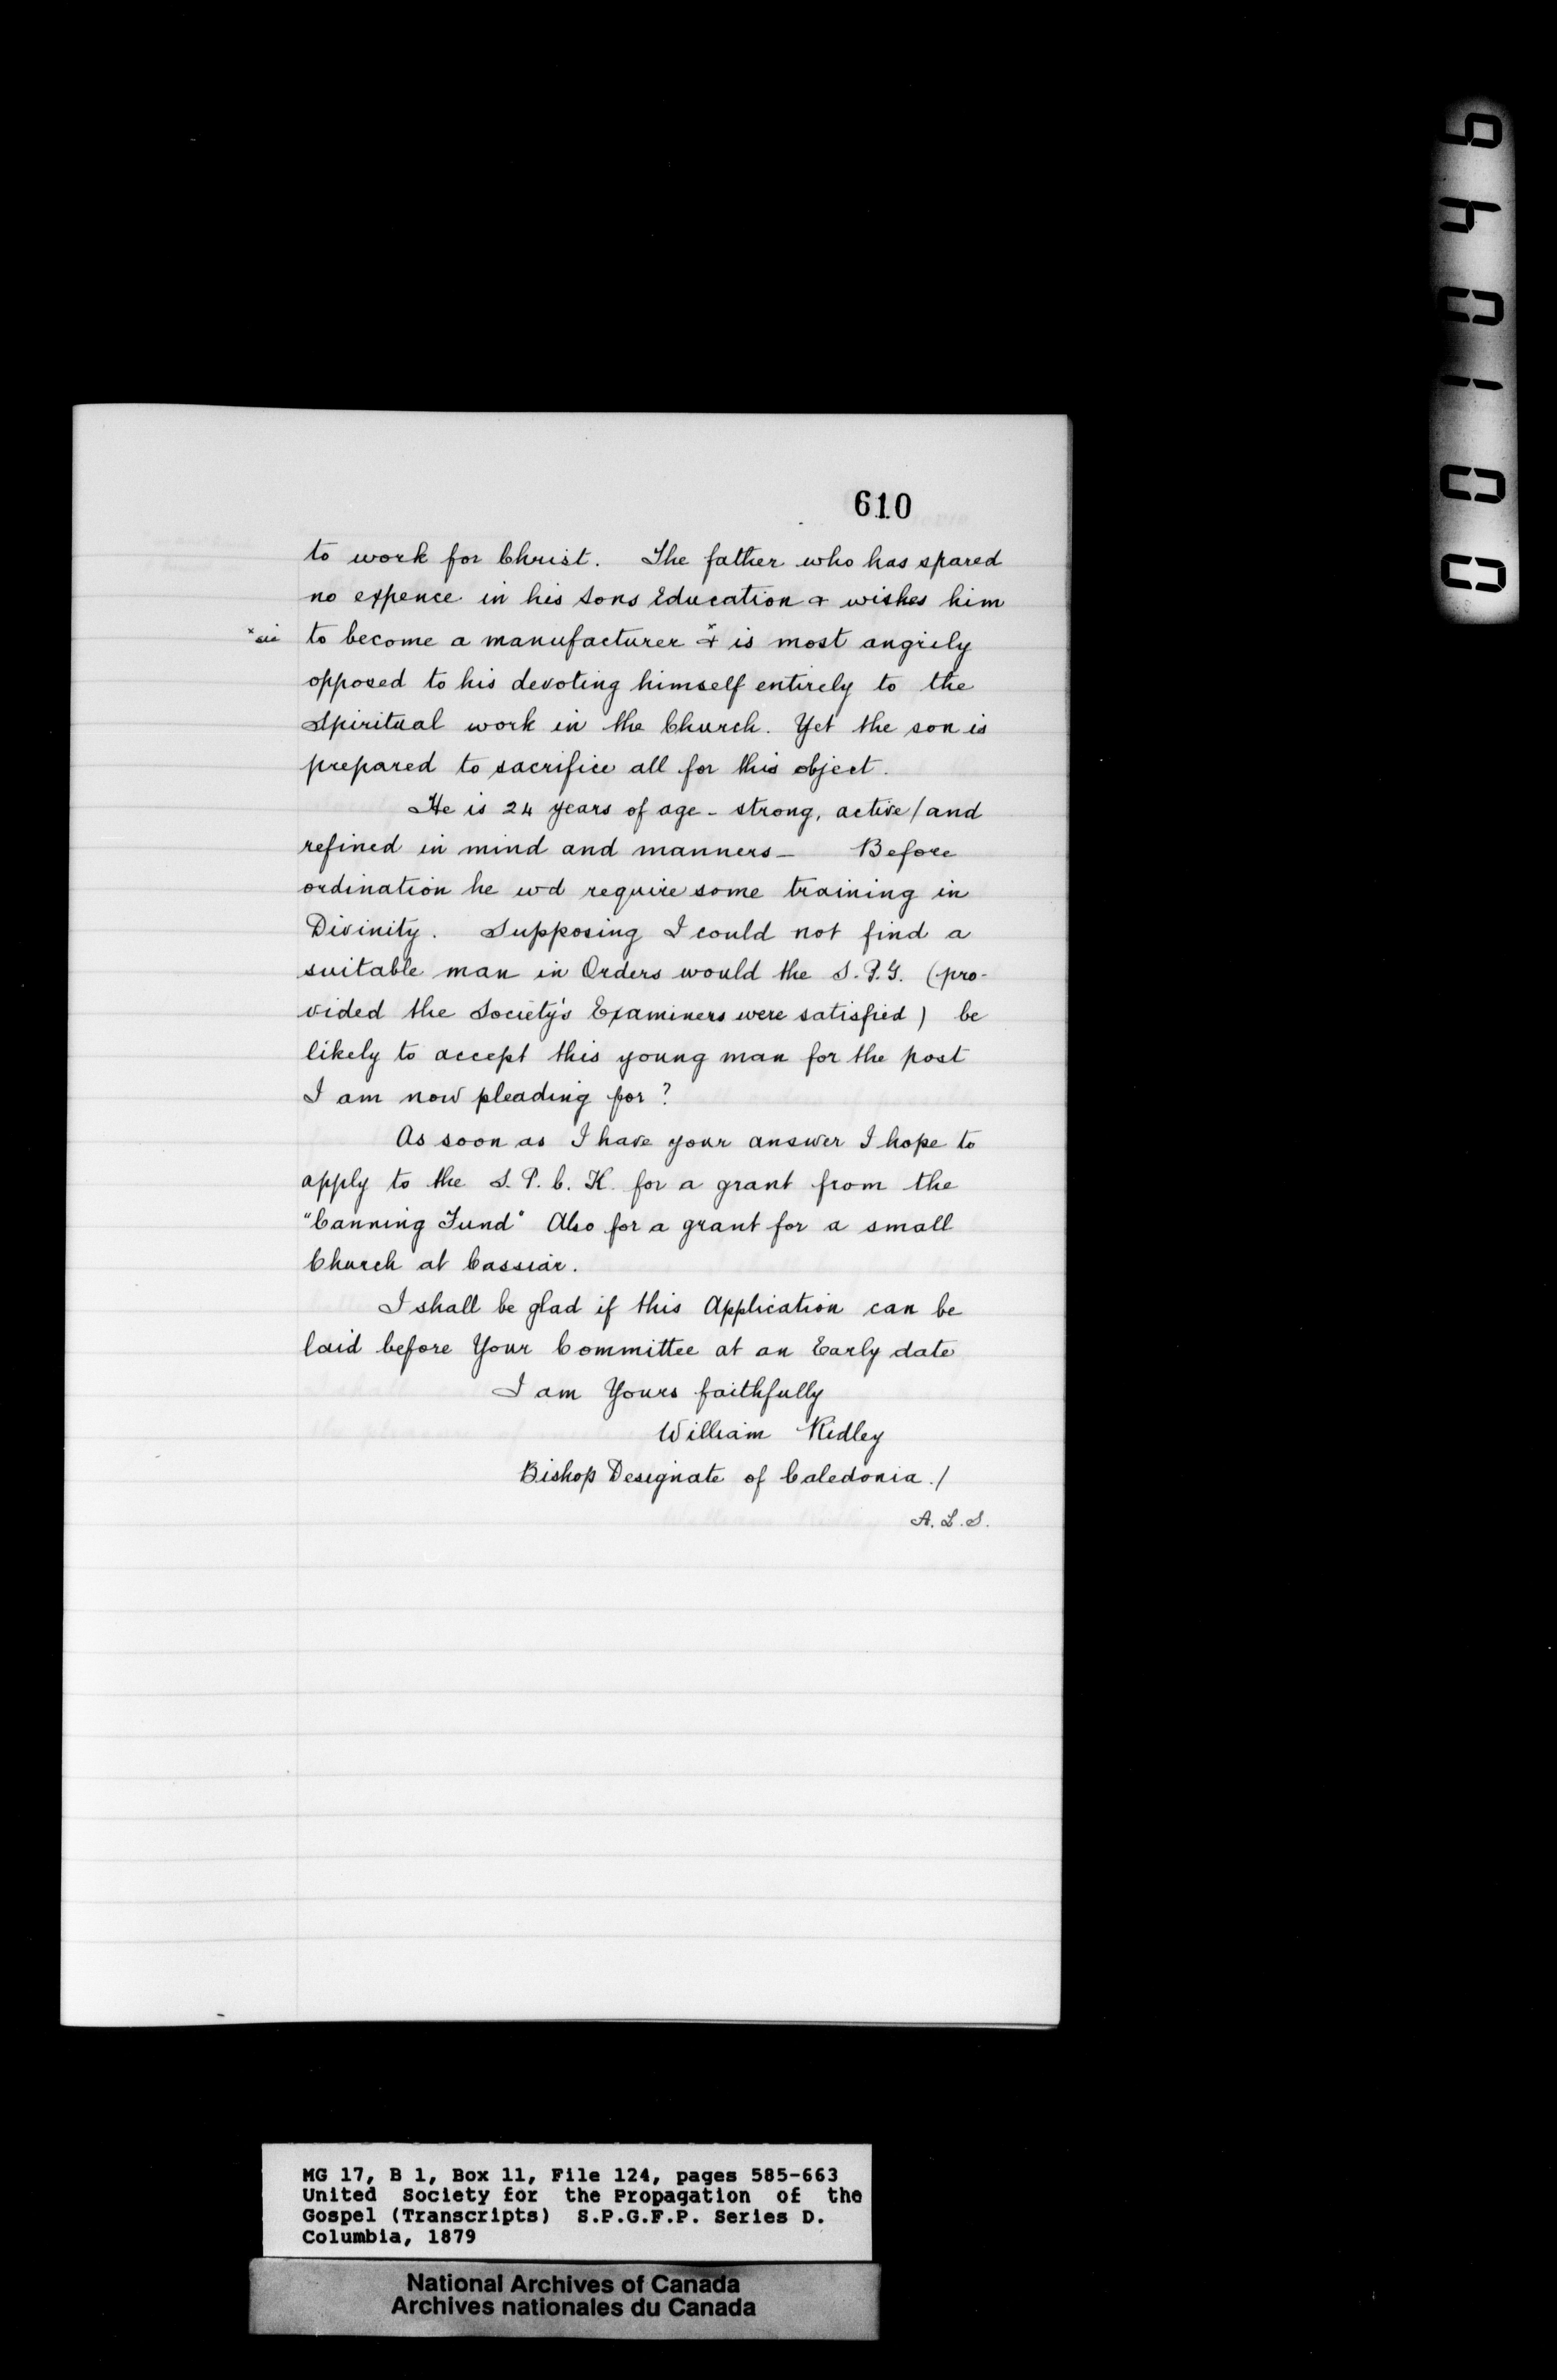 610
to work for Christ. The father who has spared
no expence in his sons Education & wishes him
*sic to become a manufacturer *& is most angrily
opposed to his devoting himself entirely to the
Spiritual work in the Church. Yet the son is
prepared to sacrifice all for this object.
He is 24 years of age - strong, active / and
refined in mind and manners - Before
ordination he wd require some training in
Divinity. Supposing I could not find a
suitable man in Orders would the S.P.G. (pro-
vided the Society's Examiners were satisfied) be
likely to accept this young man for the post
I am now pleading for?
As soon as I have your answer I hope to
apply to the S.P.C.K. for a grant from the
"Canning Fund" Also for a grant for a small
Church at Cassiar.
I shall be glad if this Application can be
laid before Your Committee at an Early date
I am Yours faithfully
William Ridley
Bishop Designate of Caledonia ./
A.L.S.
MG 17, B 1, Box 11, File 124, pages 585-663
United Society for the Propagation of the
Gospel (Transcripts) S.P.G.F.P. Series D.
Columbia, 1879
National Archives of Canada
Archives nationales du Canada
001049